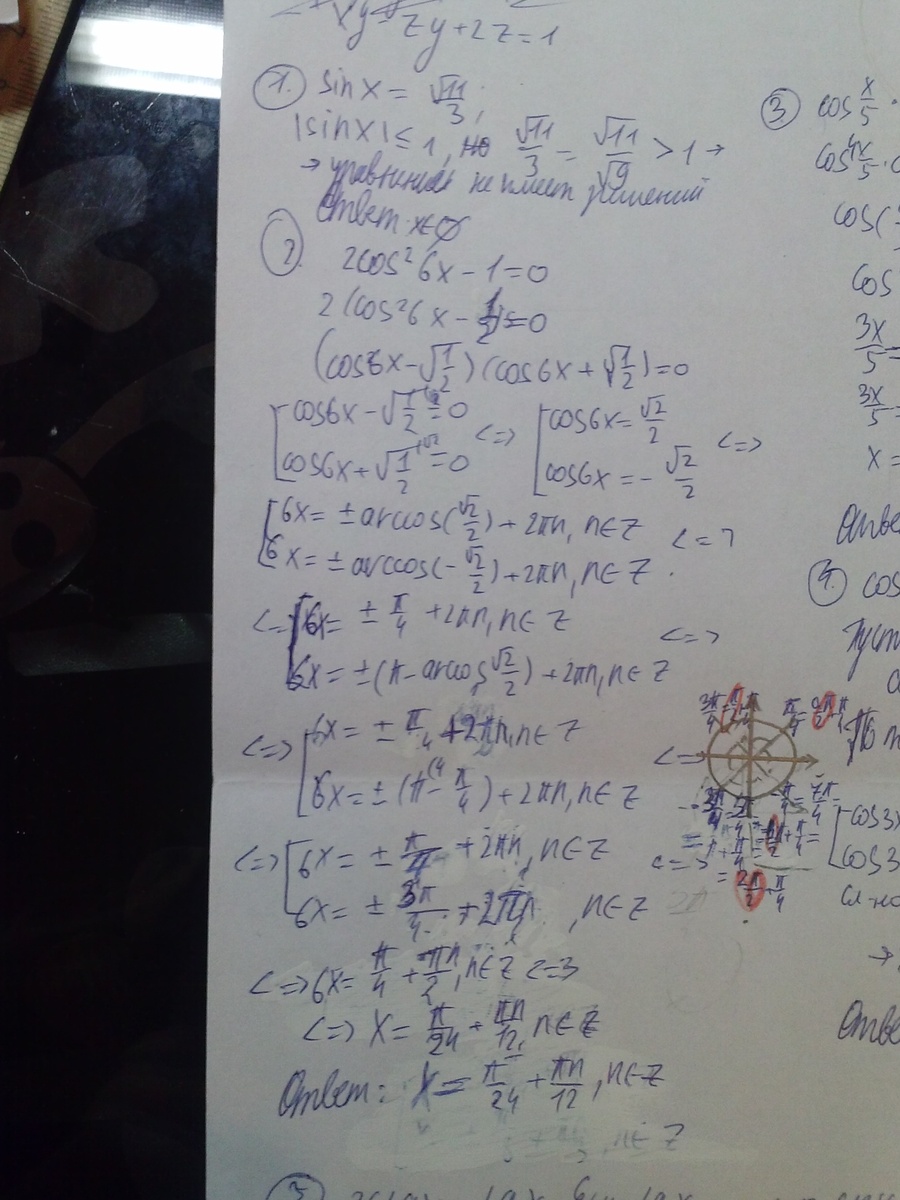 xy - zy + 2z = 1
1. sin x = √11/3;
|sin x| ≤ 1, но √11/3 = √11/√9 > 1 →
→ уравнение не имеет решений
Ответ: x∈∅
2. 2cos²6x - 1 = 0
2(cos²6x - 1/2) = 0
(cos6x - √(1/2)) (cos6x + √(1/2)) = 0
[cos6x - √(1/2) = 0
cos6x + √(1/2) = 0
<=> [cos6x = √2/2
cos6x = -√2/2 <=>
[6x = ± arccos(√2/2) + 2πn, n∈Z
6x = ± arccos(-√2/2) + 2πn, n∈Z <=>
<=> [6x = ± π/4 + 2πn, n∈Z
6x = ±(π - arccos √2/2) + 2πn, n∈Z <=>
<=> [6x = ± π/4 + 2πn, n∈Z
6x = ± (π - π/4) + 2πn, n∈Z <=>
<=> [6x = ± π/4 + 2πn, n∈Z
6x = ± 3π/4 + 2πn, n∈Z <=>
<=> 6x = π/4 + πn/2, n∈Z <=>
<=> x = π/24 + πn/12, n∈Z
Ответ: x = π/24 + πn/12, n∈Z
n∈Z
3 cos x/5 ·
cos 4x/5 · c
cos(
cos
3x/5 =
3x/5 =
x =
Отве
4. cos
Пуст
[cos3x
cos3
→
Отве